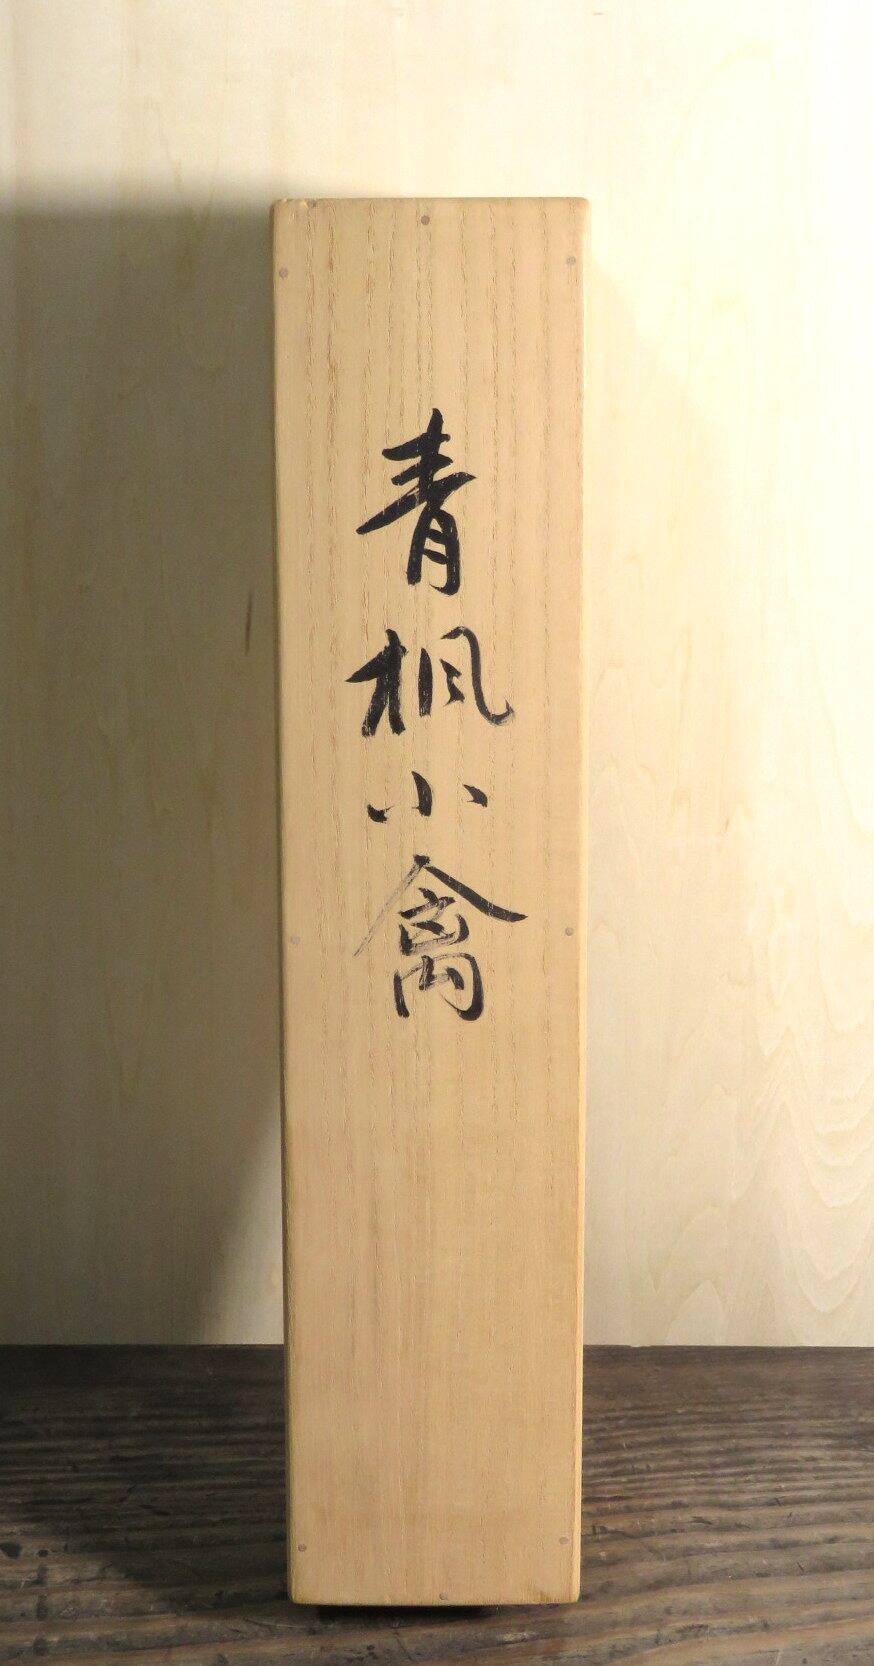 青楓小禽